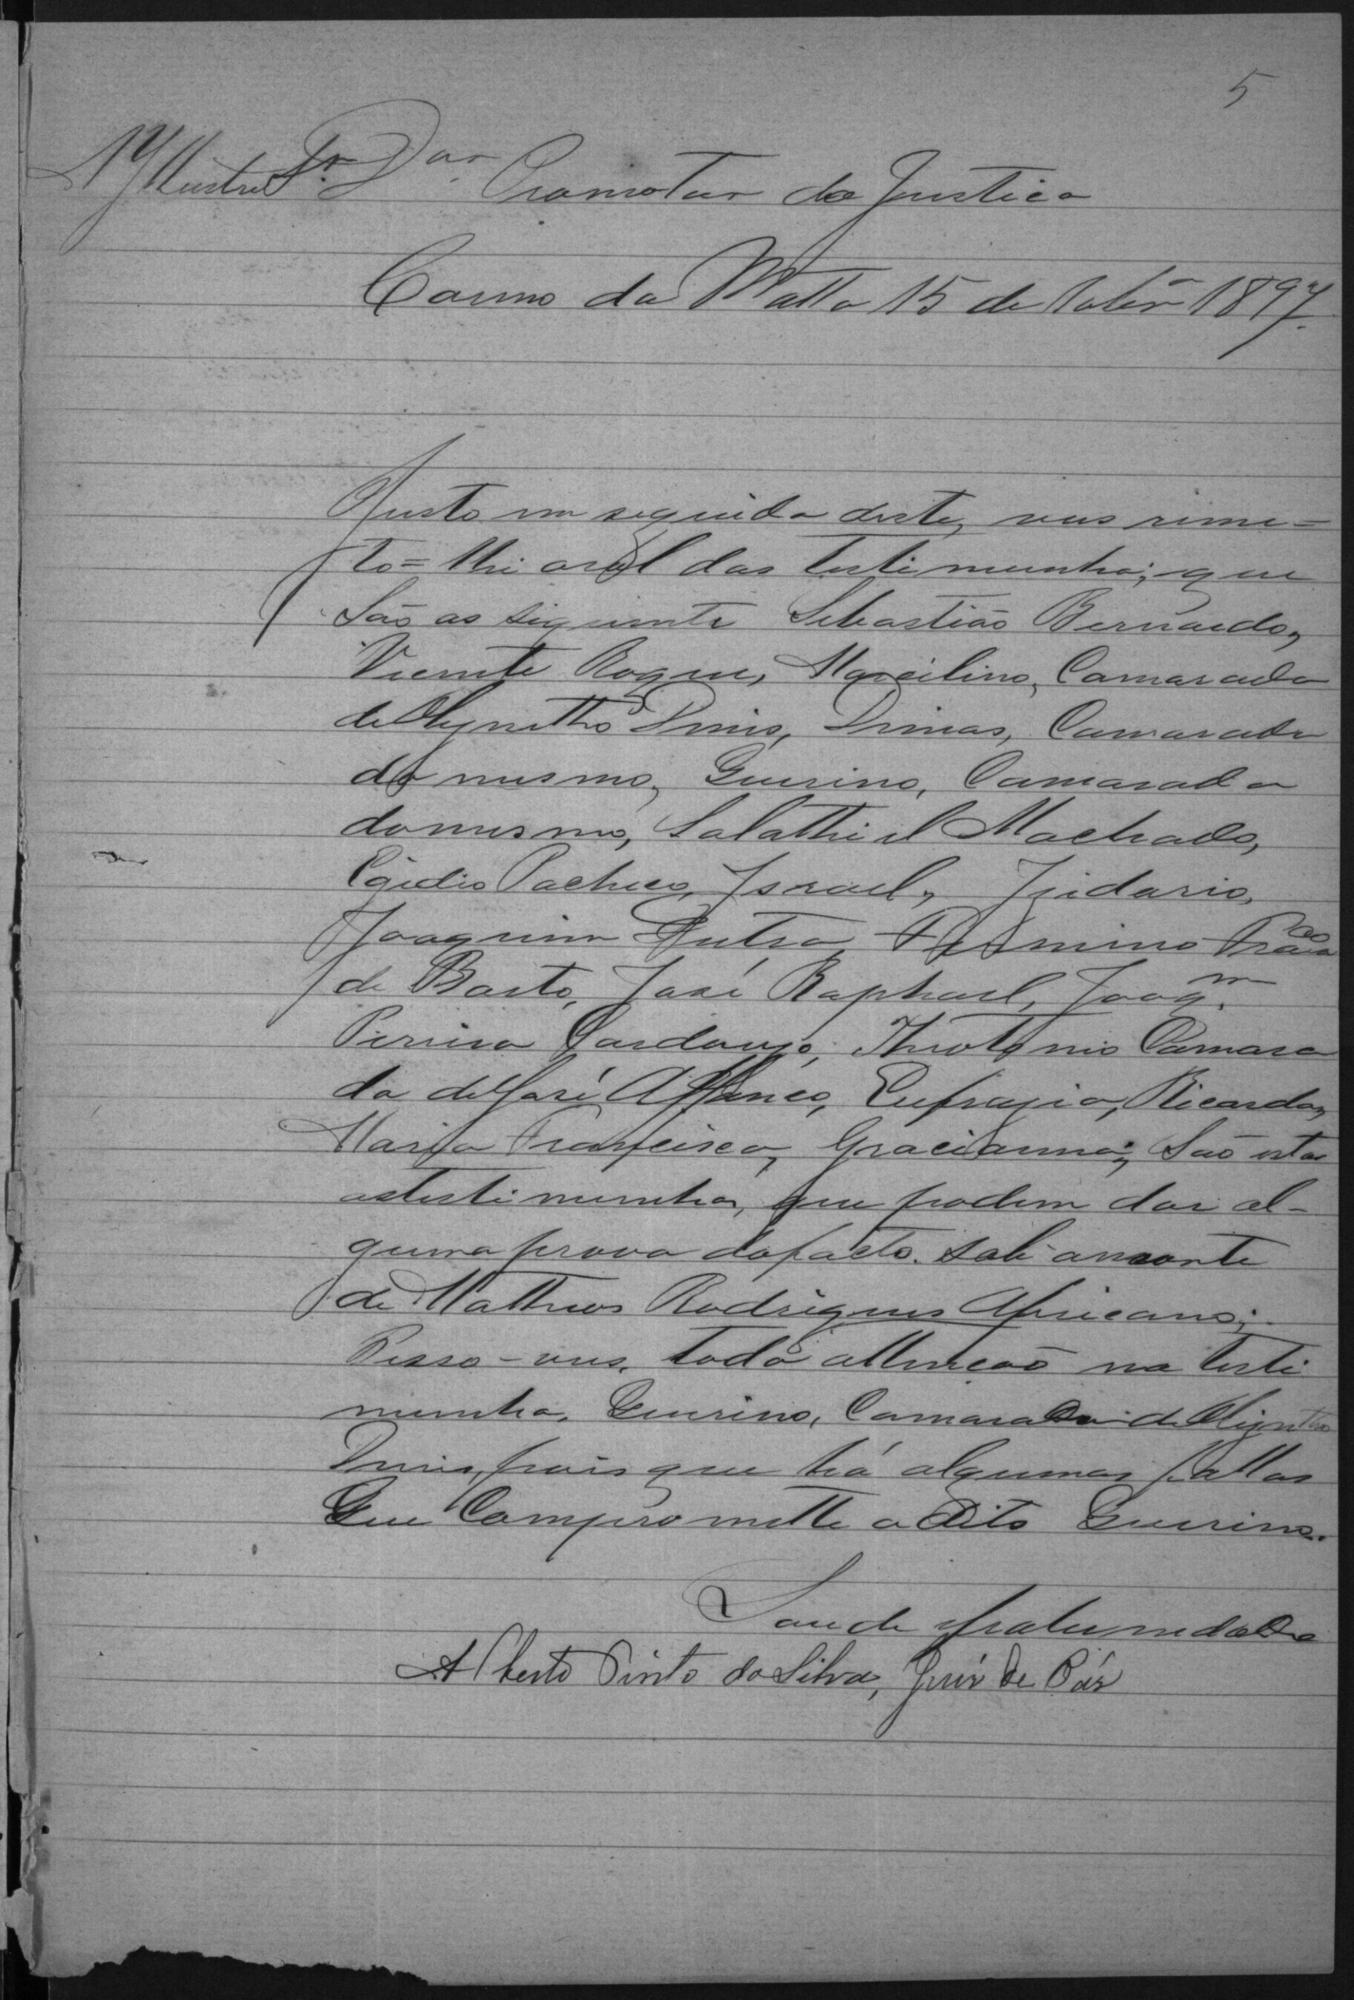 5
Illustre Sr. Dor. Promotor da Justica
Carmo da Matta 15 de 1897.
Justo em seguida deste, vus reme=
to=lhi orol das testimunha; que
São as siguinte Sebastião Bernardo,
Vicente Roque, Marcilino, Camarada
de Olyntho Dinis, Dimas, Camarada
do mesmo, Guirino, Camarada
do mesmo, Salathiel Machado,
Egidio Pacheco, Israel, Izidario,
Joaquim Dutra, Firmino
de Basto, José Raphael, Joaqm.
Pereira Cardouzo, Theotonio Camara
da de José Affonço, Eufrazia, Ricarda,
Maria Francisca, Gracianna; São estas
astestimunha, que podem dar al-
guma prova dofacto. Sobre amorte
de Matheus Rodrigues Africano;
Pesso-vus, toda attencão na testi
munha, Guirino, Camarada de Olyntho
Dinis, pois que há algumas fallas
Que Compromette o Dito Guirino.
Saude fraternidade
Alberto Pinto da Silva, Juiz de Páz